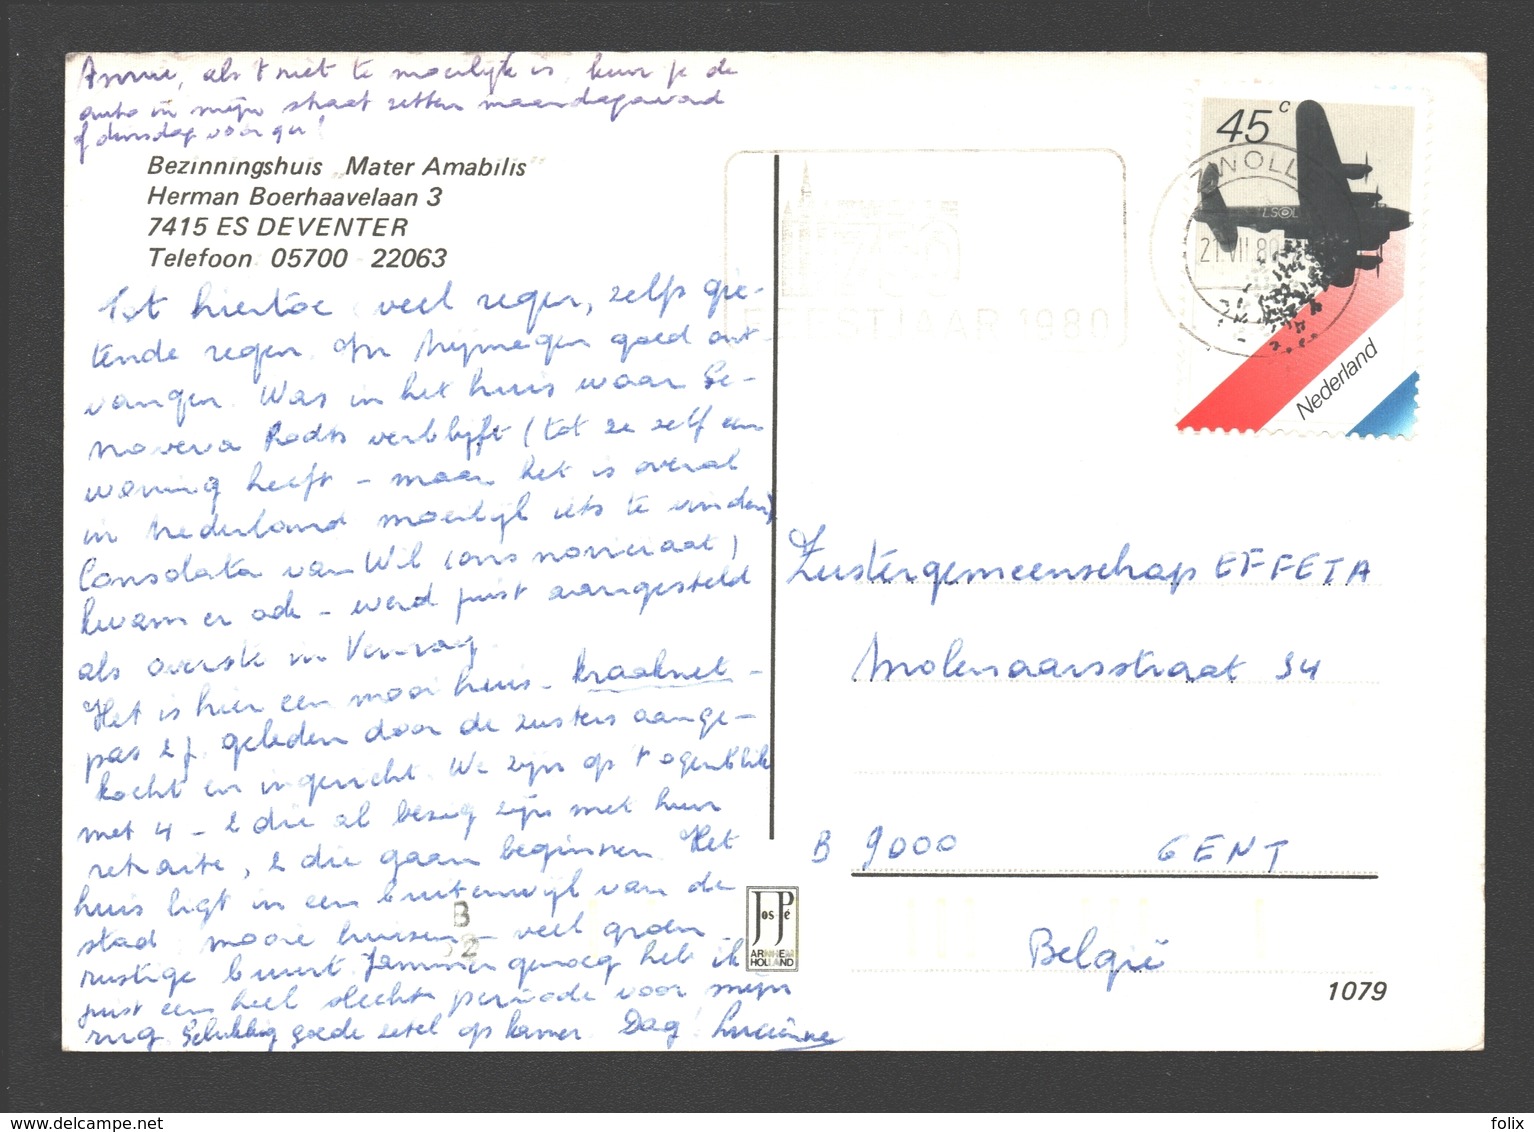 Annie, als 't niet te moeilijk is, kun je de
auto in mijn straat zetten maandagavond
of dinsdag voor
Bezinningshuis „Mater Amabilis"
Herman Boerhaavelaan 3
7415 ES DEVENTER
Telefoon 05700 - 22063
Tot hiertoe veel regen, zelfs gie-
tende regen. In Nijmegen goed ont-
vangen. Was in het huis waar Ge-
noveva Rodts verblijft (tot ze zelf een
woning heeft - maar het is overal
in Nederland moeilijk iets te vinden)
Consolata van Wil (ons noviciaat)
kwam er ook - werd juist aangesteld
als overste in Venray.
Het is hier een mooi huis - kraaknet -
pas 2 j. geleden door de zusters aange-
kocht en ingericht. We zijn op 't ogenblik
met 4 - 2 die al bezig zijn met hun
retraite, 2 die gaan beginnen. Het
huis ligt in een buitenwijk van de
stad: mooie huizen - veel groen -
rustige buurt. Jammer genoeg heb ik
juist een heel slechte periode voor mijn
rug. Gelukkig goede zetel op kamer. Dag! Lucienne
45 c
Nederland
ZWOLLE
21.VII.80
750
FEESTJAAR 1980
Zustergemeenschap EFFETA
Molenaarsstraat 34
B 9000 GENT
België
B
52
José
ARNHEM
HOLLAND
1079
felix